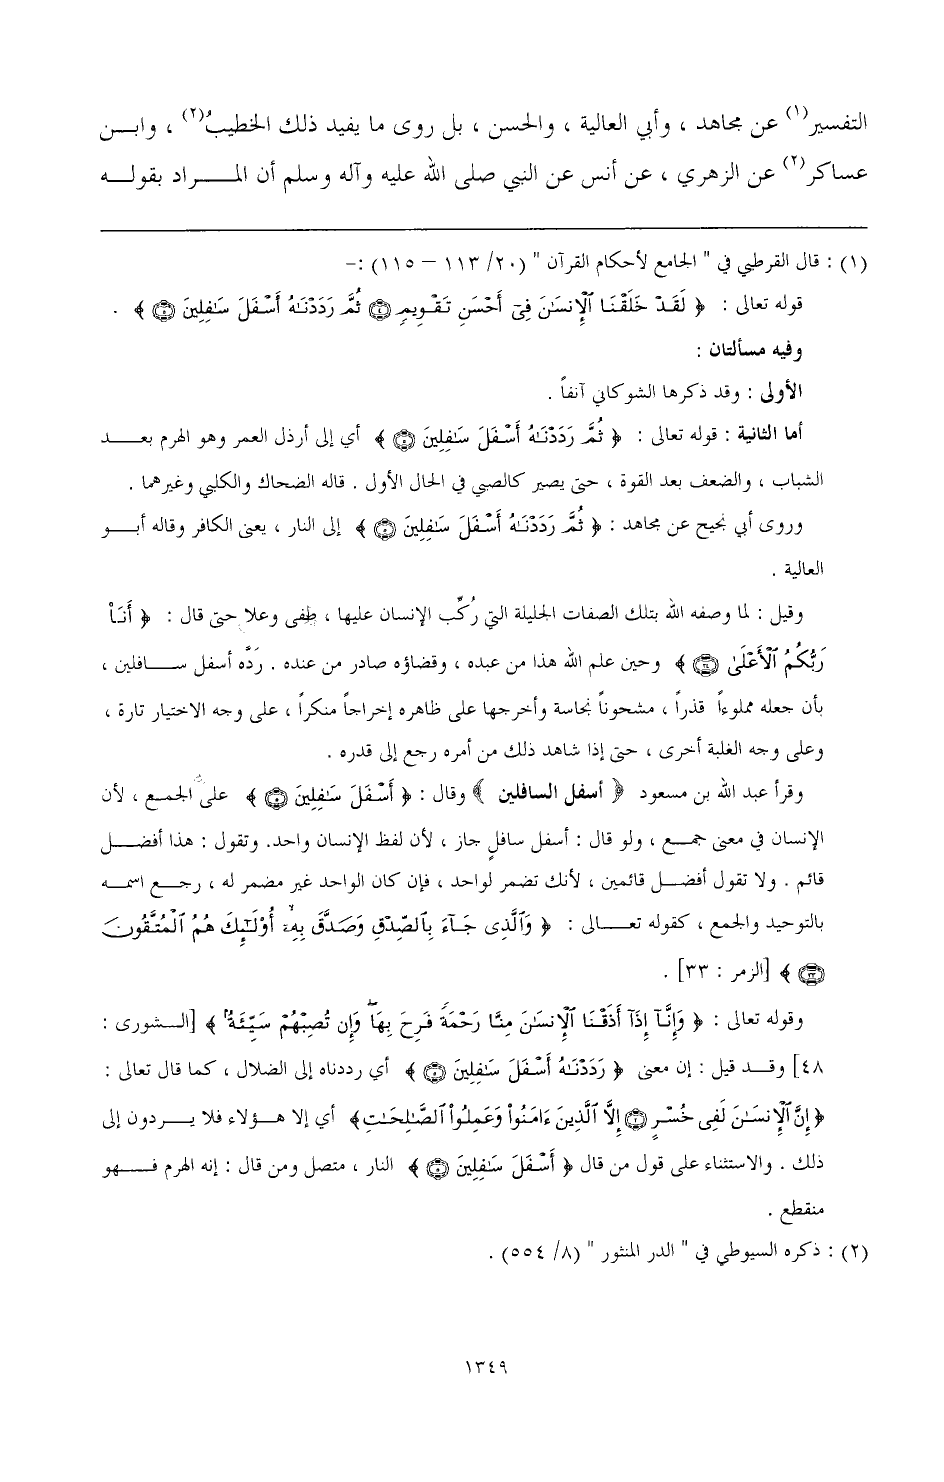 التفسير(١) عن مجاهد ، وأبي العالية ، والحسن ، بل روى ما يفيد ذلك الخطيبُ(٢) ، وابـــن
عساكر(٢) عن الزهري ، عن أنس عن النبي صلى الله عليه وآله وسلم أن المـــــراد بقولـــه
(١) : قال القرطبي في " الجامع لأحكام القرآن " (٢٠/ ١١٣ – ١١٥) :-
قوله تعالى : ﴿ لَقَدْ خَلَقْنَا ٱلْإِنسَٰنَ فِىٓ أَحْسَنِ تَقْوِيمٍ ۝٤ ثُمَّ رَدَدْنَٰهُ أَسْفَلَ سَٰفِلِينَ ۝٥ ﴾ .
وفيه مسألتان :
الأولى : وقد ذكرها الشوكاني آنفاً .
أما الثانية : قوله تعالى : ﴿ ثُمَّ رَدَدْنَٰهُ أَسْفَلَ سَٰفِلِينَ ۝٥ ﴾ أي إلى أرذل العمر وهو الهرم بعـــد
الشباب ، والضعف بعد القوة ، حتى يصير كالصبي في الحال الأول . قاله الضحاك والكلبي وغيرهما .
وروى أبي نجيح عن مجاهد : ﴿ ثُمَّ رَدَدْنَٰهُ أَسْفَلَ سَٰفِلِينَ ۝٥ ﴾ إلى النار ، يعني الكافر وقاله أبـــو
العالية .
وقيل : لما وصفه الله بتلك الصفات الجليلة التي رُكِّب الإنسان عليها ، طفى وعلا حتى قال : ﴿ أَنَا۠
رَبُّكُمُ ٱلْأَعْلَىٰ ۝٢٤ ﴾ وحين علم الله هذا من عبده ، وقضاؤه صادر من عنده . ردَّه أسفل ســـافلين ،
بأن جعله مملوءاً قذراً ، مشحوناً نجاسة وأخرجها على ظاهره إخراجاً منكراً ، على وجه الاختيار تارة ،
وعلى وجه الغلبة أخرى ، حتى إذا شاهد ذلك من أمره رجع إلى قدره .
وقرأ عبد الله بن مسعود ﴿ أسفل السافلين ﴾ وقال : ﴿ أَسْفَلَ سَٰفِلِينَ ۝٥ ﴾ على الجمع ، لأن
الإنسان في معنى جمـــع ، ولو قال : أسفل سافلٍ جاز ، لأن لفظ الإنسان واحد. وتقول : هذا أفضـــل
قائم . ولا تقول أفضـــل قائمين ، لأنك تضمر لواحد ، فإن كان الواحد غير مضمر له ، رجـــع اسمـــه
بالتوحيد والجمع ، كقوله تعـــالى : ﴿ وَٱلَّذِى جَآءَ بِٱلصِّدْقِ وَصَدَّقَ بِهِۦٓ أُو۟لَٰٓئِكَ هُمُ ٱلْمُتَّقُونَ
۝٣٣ ﴾ [الزمر : ٣٣] .
وقوله تعالى : ﴿ وَإِنَّآ إِذَآ أَذَقْنَا ٱلْإِنسَٰنَ مِنَّا رَحْمَةً فَرِحَ بِهَا ۖ وَإِن تُصِبْهُمْ سَيِّئَةٌۢ ﴾ [الـــشورى :
٤٨] وقـــد قيل : إن معنى ﴿ رَدَدْنَٰهُ أَسْفَلَ سَٰفِلِينَ ۝٥ ﴾ أي رددناه إلى الضلال ، كما قال تعالى :
﴿ إِنَّ ٱلْإِنسَٰنَ لَفِى خُسْرٍ ۝٢ إِلَّا ٱلَّذِينَ ءَامَنُوا۟ وَعَمِلُوا۟ ٱلصَّٰلِحَٰتِ ﴾ أي إلا هـــؤلاء فلا يـــردون إلى
ذلك . والاستثناء على قول من قال ﴿ أَسْفَلَ سَٰفِلِينَ ۝٥ ﴾ النار ، متصل ومن قال : إنه الهرم فـــهو
منقطع .
(٢) : ذكره السيوطي في " الدر المنثور " (٨/ ٥٥٤) .
١٣٤٩